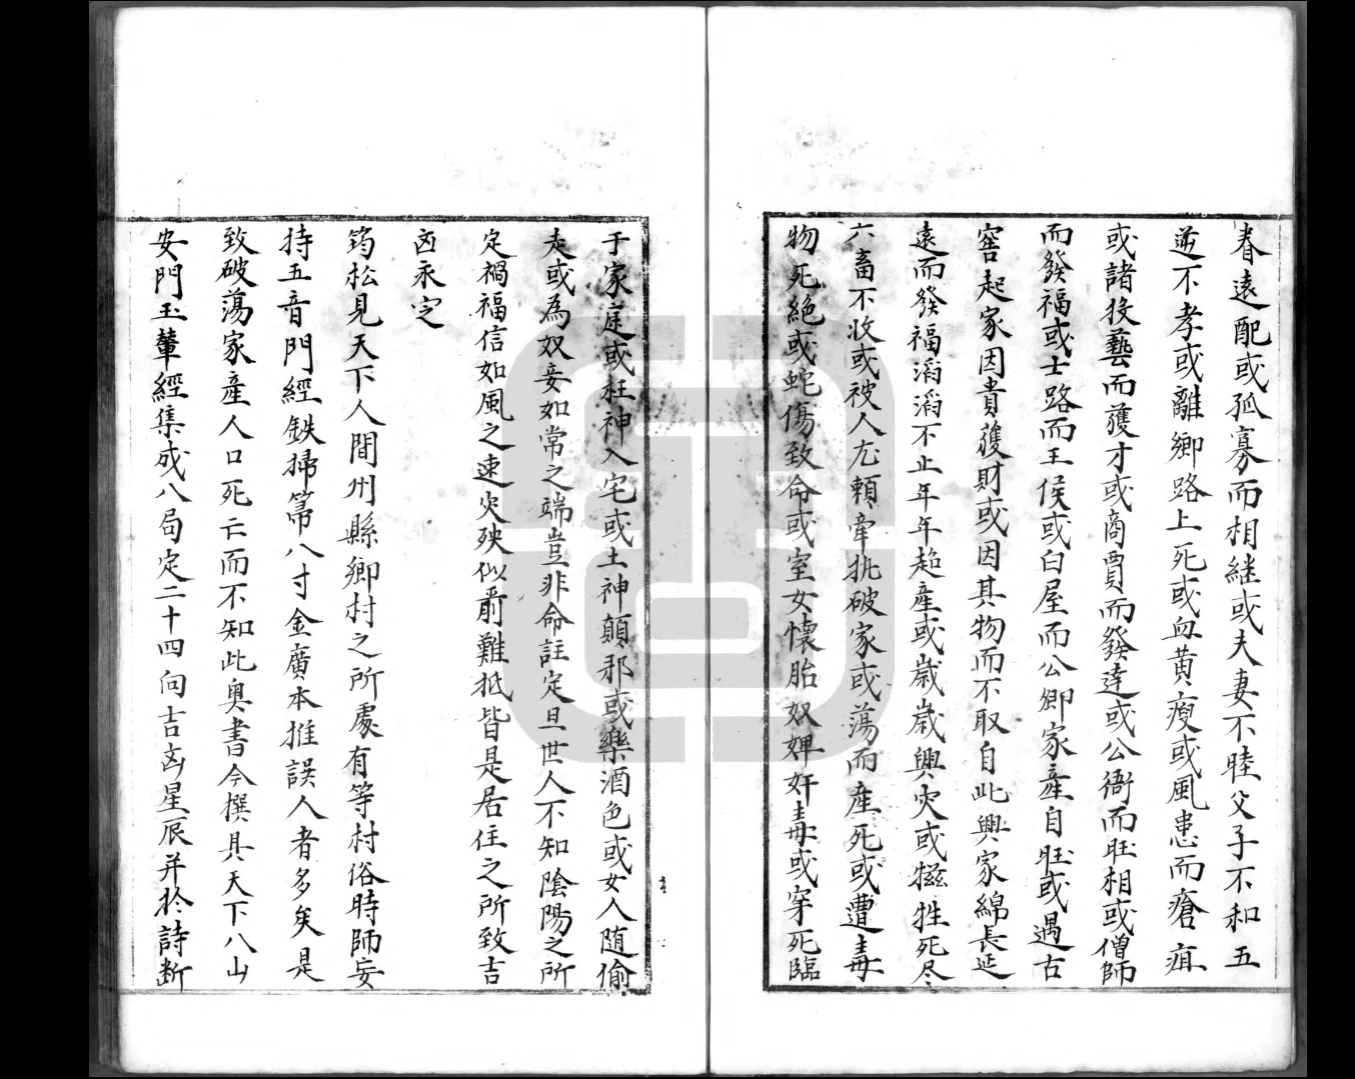 眷遠配或孤寡而相継或夫妻不睦父子不和五
逆不孝或離鄉路上死或血黄瘦或風患而瘡疽
或諸役藝而獲才或商賈而發達或公衙而旺相或僧師
而發福或士路而王侯或白屋而公卿家産自旺或遇古
窖起家因貴獲財或因其物而不取自此興家綿長延
遠而發福滔滔不止年年超産或歳歳興灾或犠牲死尽
六畜不收或被人尨頼牽扰破家或蕩而産死或遭毒
物死絶或蛇傷致命或室女懐胎奴婢奸毒或穽死臨
于家庭或枉神入宅或土神顛邪或樂酒色或女人随偷
走或為奴妾如常之端豈非命註定旦世人不知陰陽之所
定禍福信如風之速灾殃似爵難抵皆是居住之所致吉
凶永定
筠松見天下人間州縣鄉村之所處有等村俗時師妄
持五音門經鉄掃箒八寸金廣本推誤人者多矣是
致破蕩家產人口死亡而不知此奥書今撰具天下八山
安門玉輦經集成八局定二十四向吉凶星辰并於詩断